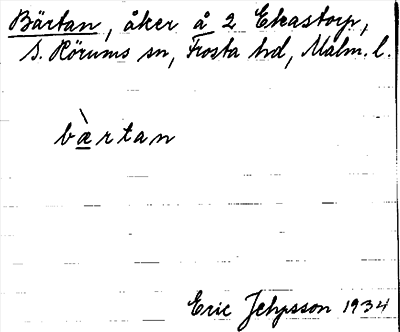 Bärtan, åker å 2 Ekastorp,
S. Hörums sn, Frosta hd, Malm. l.
bὰrtan
Eric Jepsson 1934